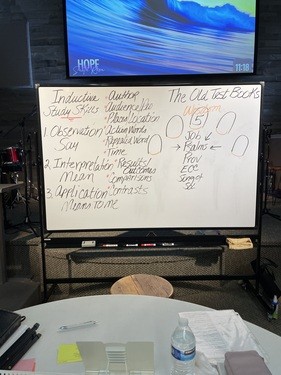 HOPE
11:18
Inductive
Study Skills
• Author
• Audience
• Place/Location
1. Observation
Say
• Action Words
• Repeated Word
• Time
2. Interpretation
Mean
• Results/
Outcomes
• Comparisons
3. Application
• Contrasts
Means to me
The Old Test Books
5
Job
→ Psalms ←
Prov
ECC
Song of
Sol